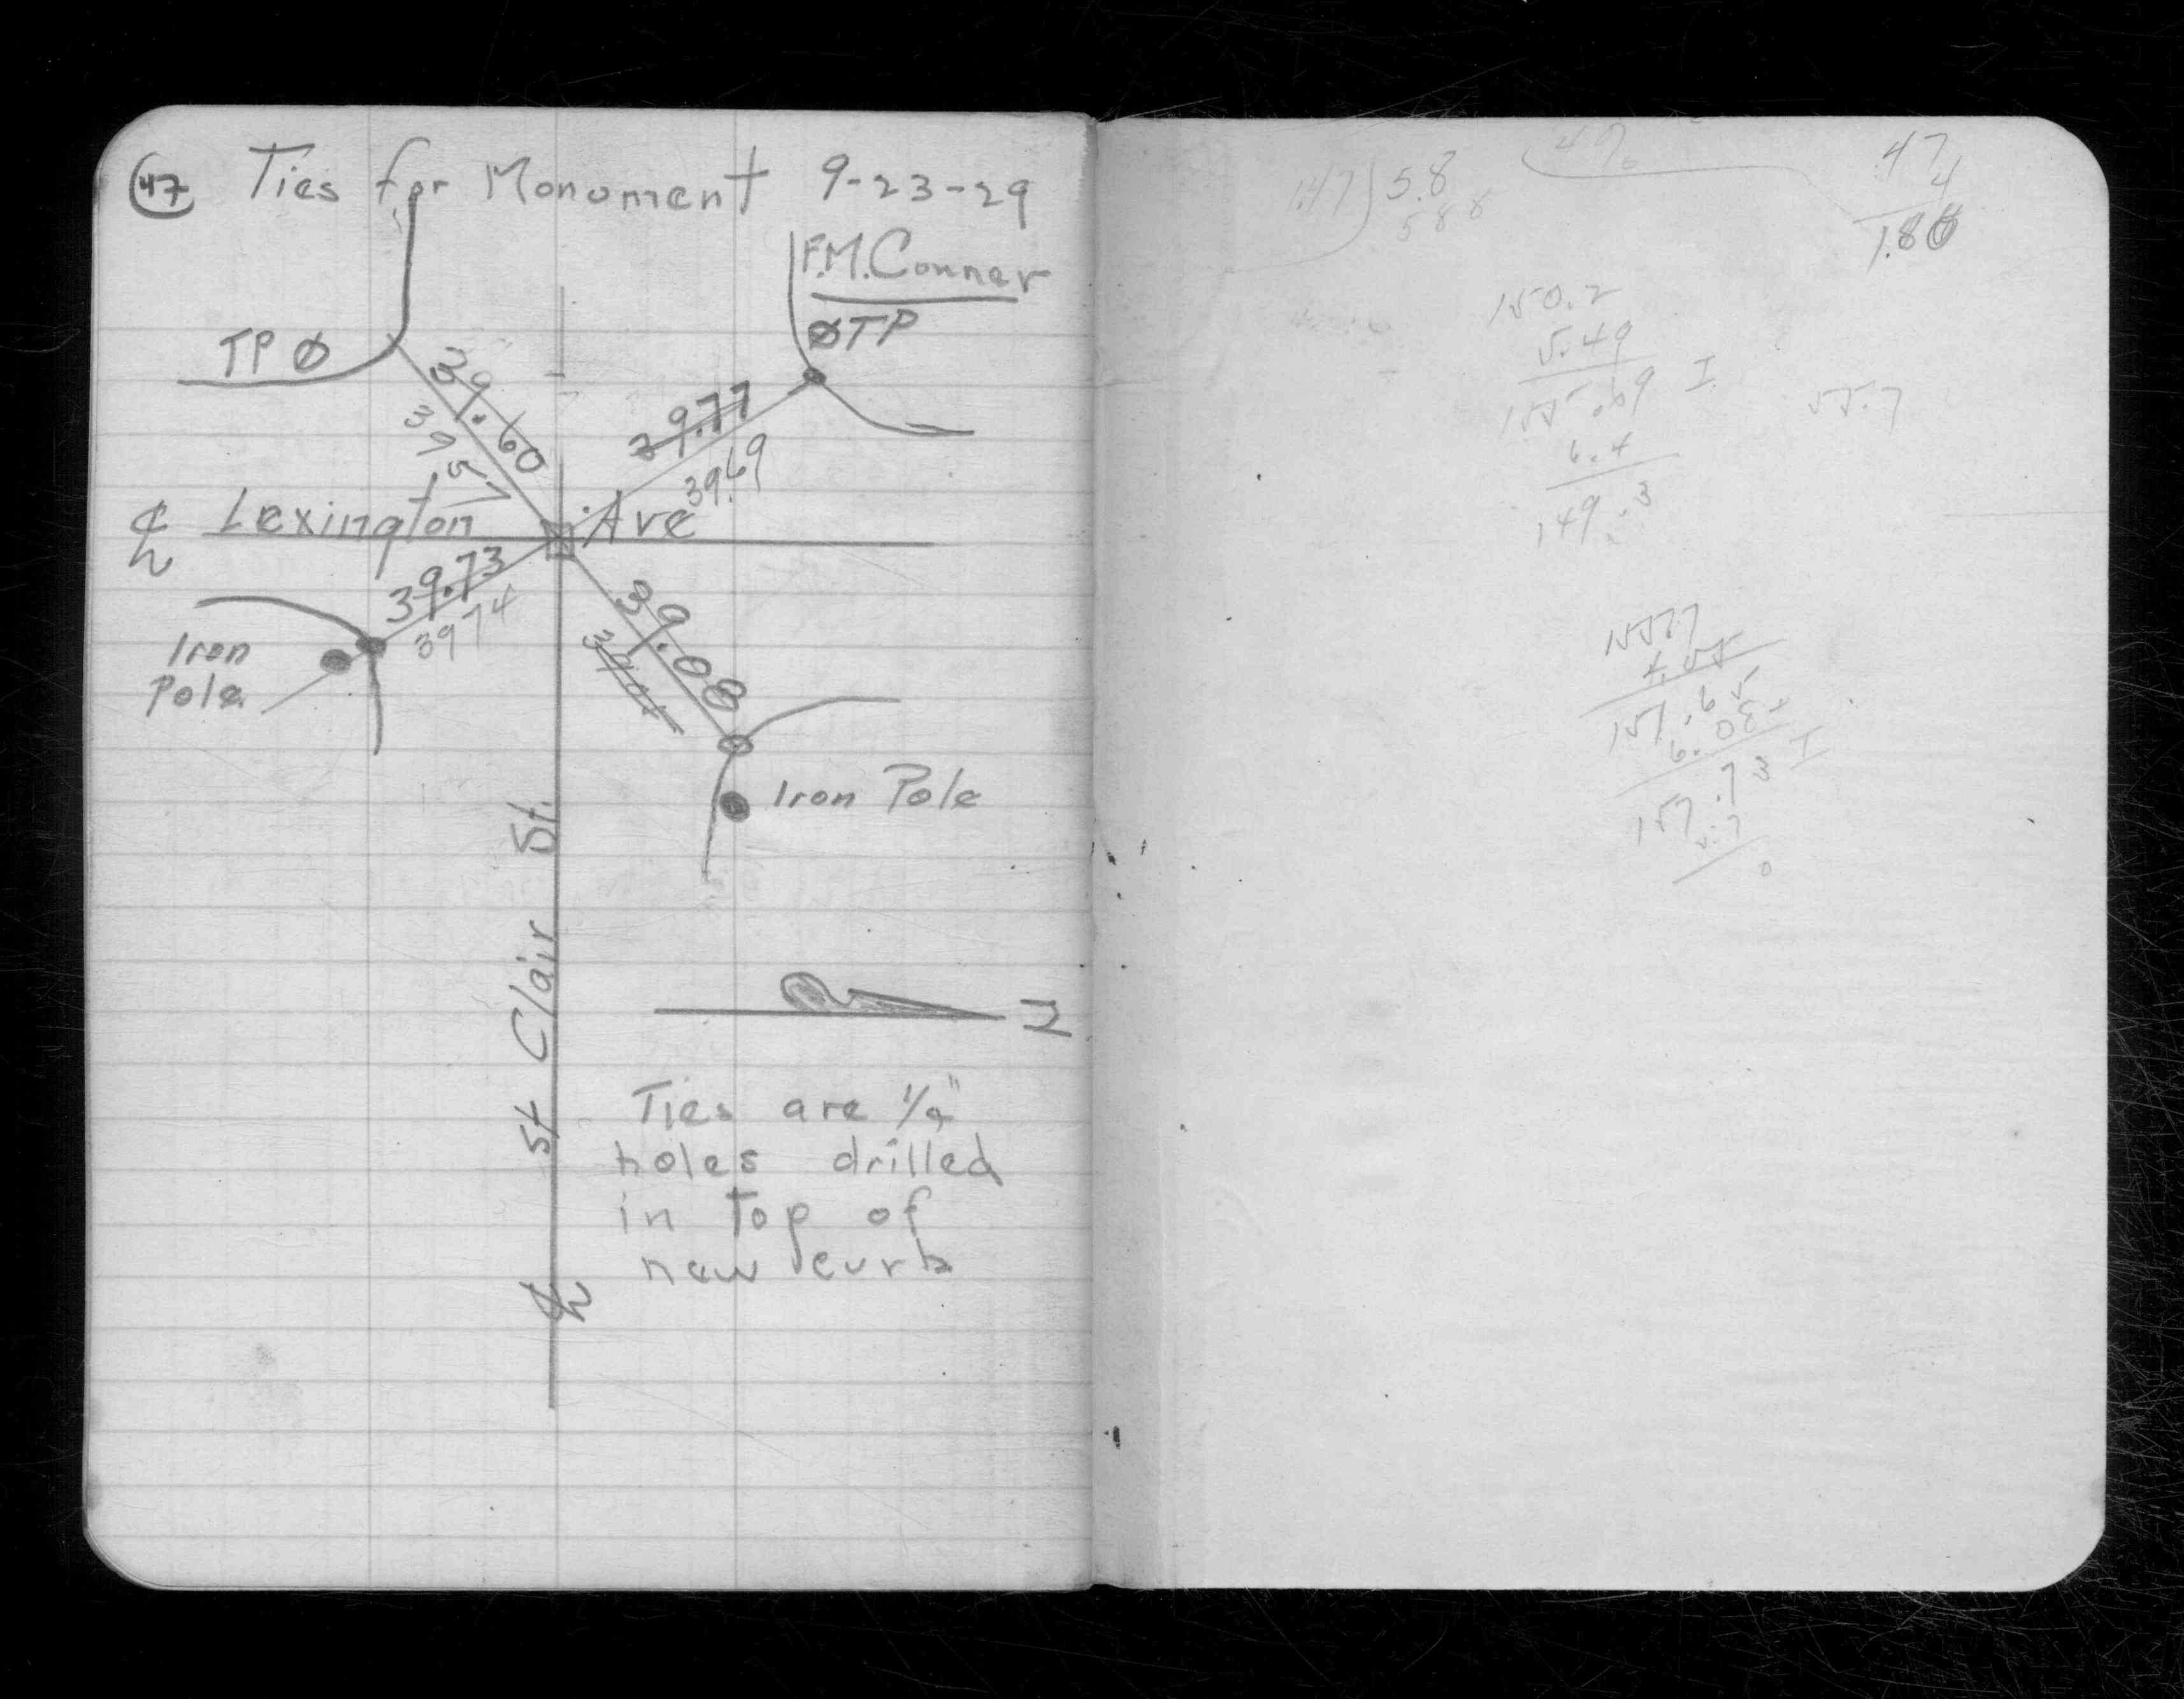 47 Ties for Monument 9-23-29
F.M. Conner
TP Ø
ØTP
39.60
39.57
39.77
39.69
℄ Lexington Ave
39.73
39 74
39.08
Iron
Pole
Iron Pole
℄ St Clair St.
N
Ties are 1/4"
holes drilled
in Top of
new curb
.47
4
1.88
1.47)5.8
5 8 8
150.2
5.49
155.69 I
6.4
149.3
55.7
6.08
157.73 I